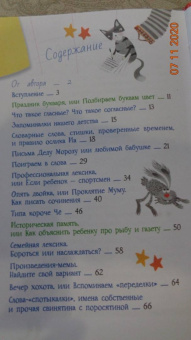 Содержание
От автора ... 2
Вступление ... 3
Праздник букваря, или Подбираем буквам цвет ... 11
Что такое гласные? Что такое согласные? ... 13
Запоминалки нашего детства ... 15
Словарные слова, стишки, проверенные временем,
и правило осла Иа ... 18
Письма Деду Морозу или любимой бабушке ... 21
Поиграем в слова ... 29
Профессиональная лексика,
или Если ребенок — спортсмен ... 34
Опять двойка, или Проклятие Муму.
Как писать сочинения ... 40
Типа короче Че ... 46
Историческая память,
или Как объяснить ребенку про рыбу и газету ... 50
Семейная лексика.
Бороться или наслаждаться? ... 58
Произведения-мемы.
Найдите свой вариант ... 62
Вечер хохота, или Вспоминаем "переделки" ... 64
Слова-"спотыкалки", имена собственные
и прочая свинятина с поросятиной ... 66
07 11 2020